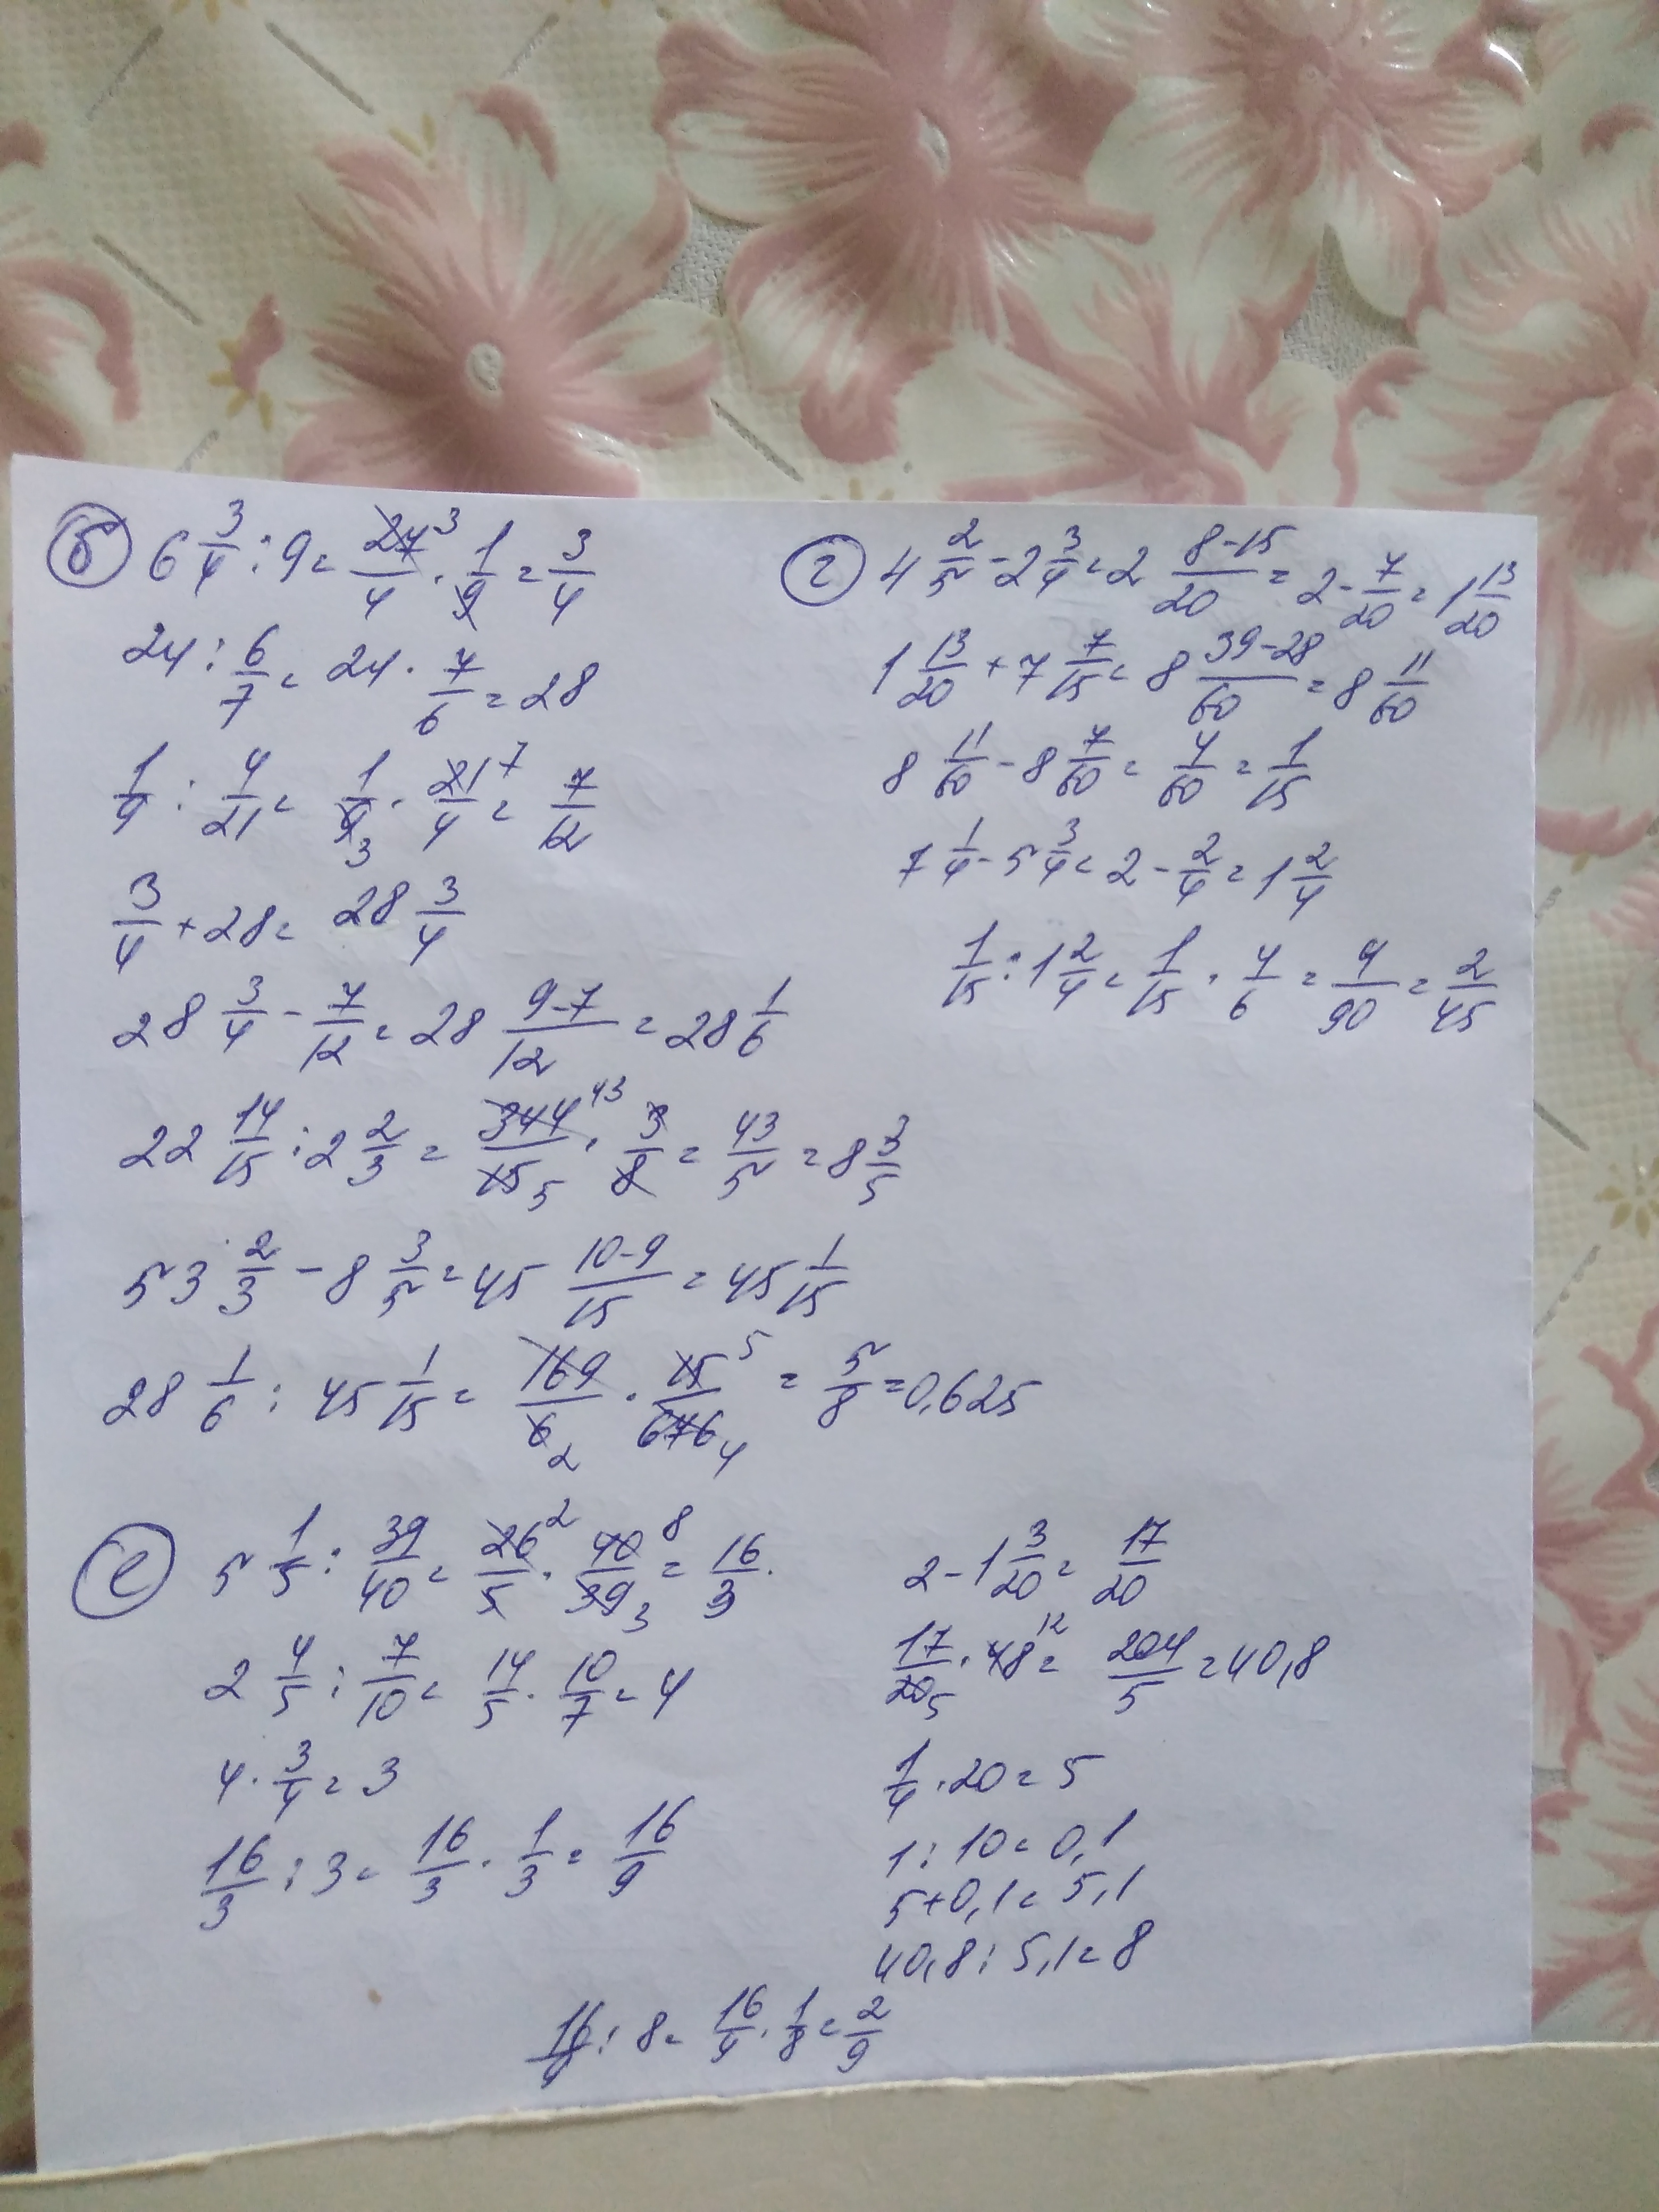 б) 6 3/4 : 9 = 27 3/4 · 1/9 = 3/4
24 : 6/7 = 24 · 7/6 = 28
1/9 : 4/21 = 1/9 3 · 21 7/4 = 7/12
3/4 + 28 = 28 3/4
28 3/4 - 7/12 = 28 9-7/12 = 28 1/6
22 14/15 : 2 2/3 = 344 43/15 5 · 3/8 = 43/5 = 8 3/5
53 2/3 - 8 3/5 = 45 10-9/15 = 45 1/15
28 1/6 : 45 1/15 = 169/6 2 · 15 5/676 4 = 5/8 = 0,625
г) 4 2/5 - 2 3/4 = 2 8-15/20 = 2 - 7/20 = 1 13/20
1 13/20 + 7 7/15 = 8 39-28/60 = 8 11/60
8 11/60 - 8 7/60 = 4/60 = 1/15
7 1/4 - 5 3/4 = 2 - 2/4 = 1 2/4
1/15 : 1 2/4 = 1/15 · 4/6 = 4/90 = 2/45
е) 5 1/5 : 39/40 = 26 2/5 · 40 8/39 3 = 16/3.
2 4/5 : 7/10 = 14/5 · 10/7 = 4
4 · 3/4 = 3
16/3 : 3 = 16/3 · 1/3 = 16/9
2 - 1 3/20 = 17/20
17/20 5 · 48 12 = 204/5 = 40,8
1/4 · 20 = 5
1 : 10 = 0,1
5 + 0,1 = 5,1
40,8 : 5,1 = 8
16/9 : 8 = 16/9 · 1/8 = 2/9